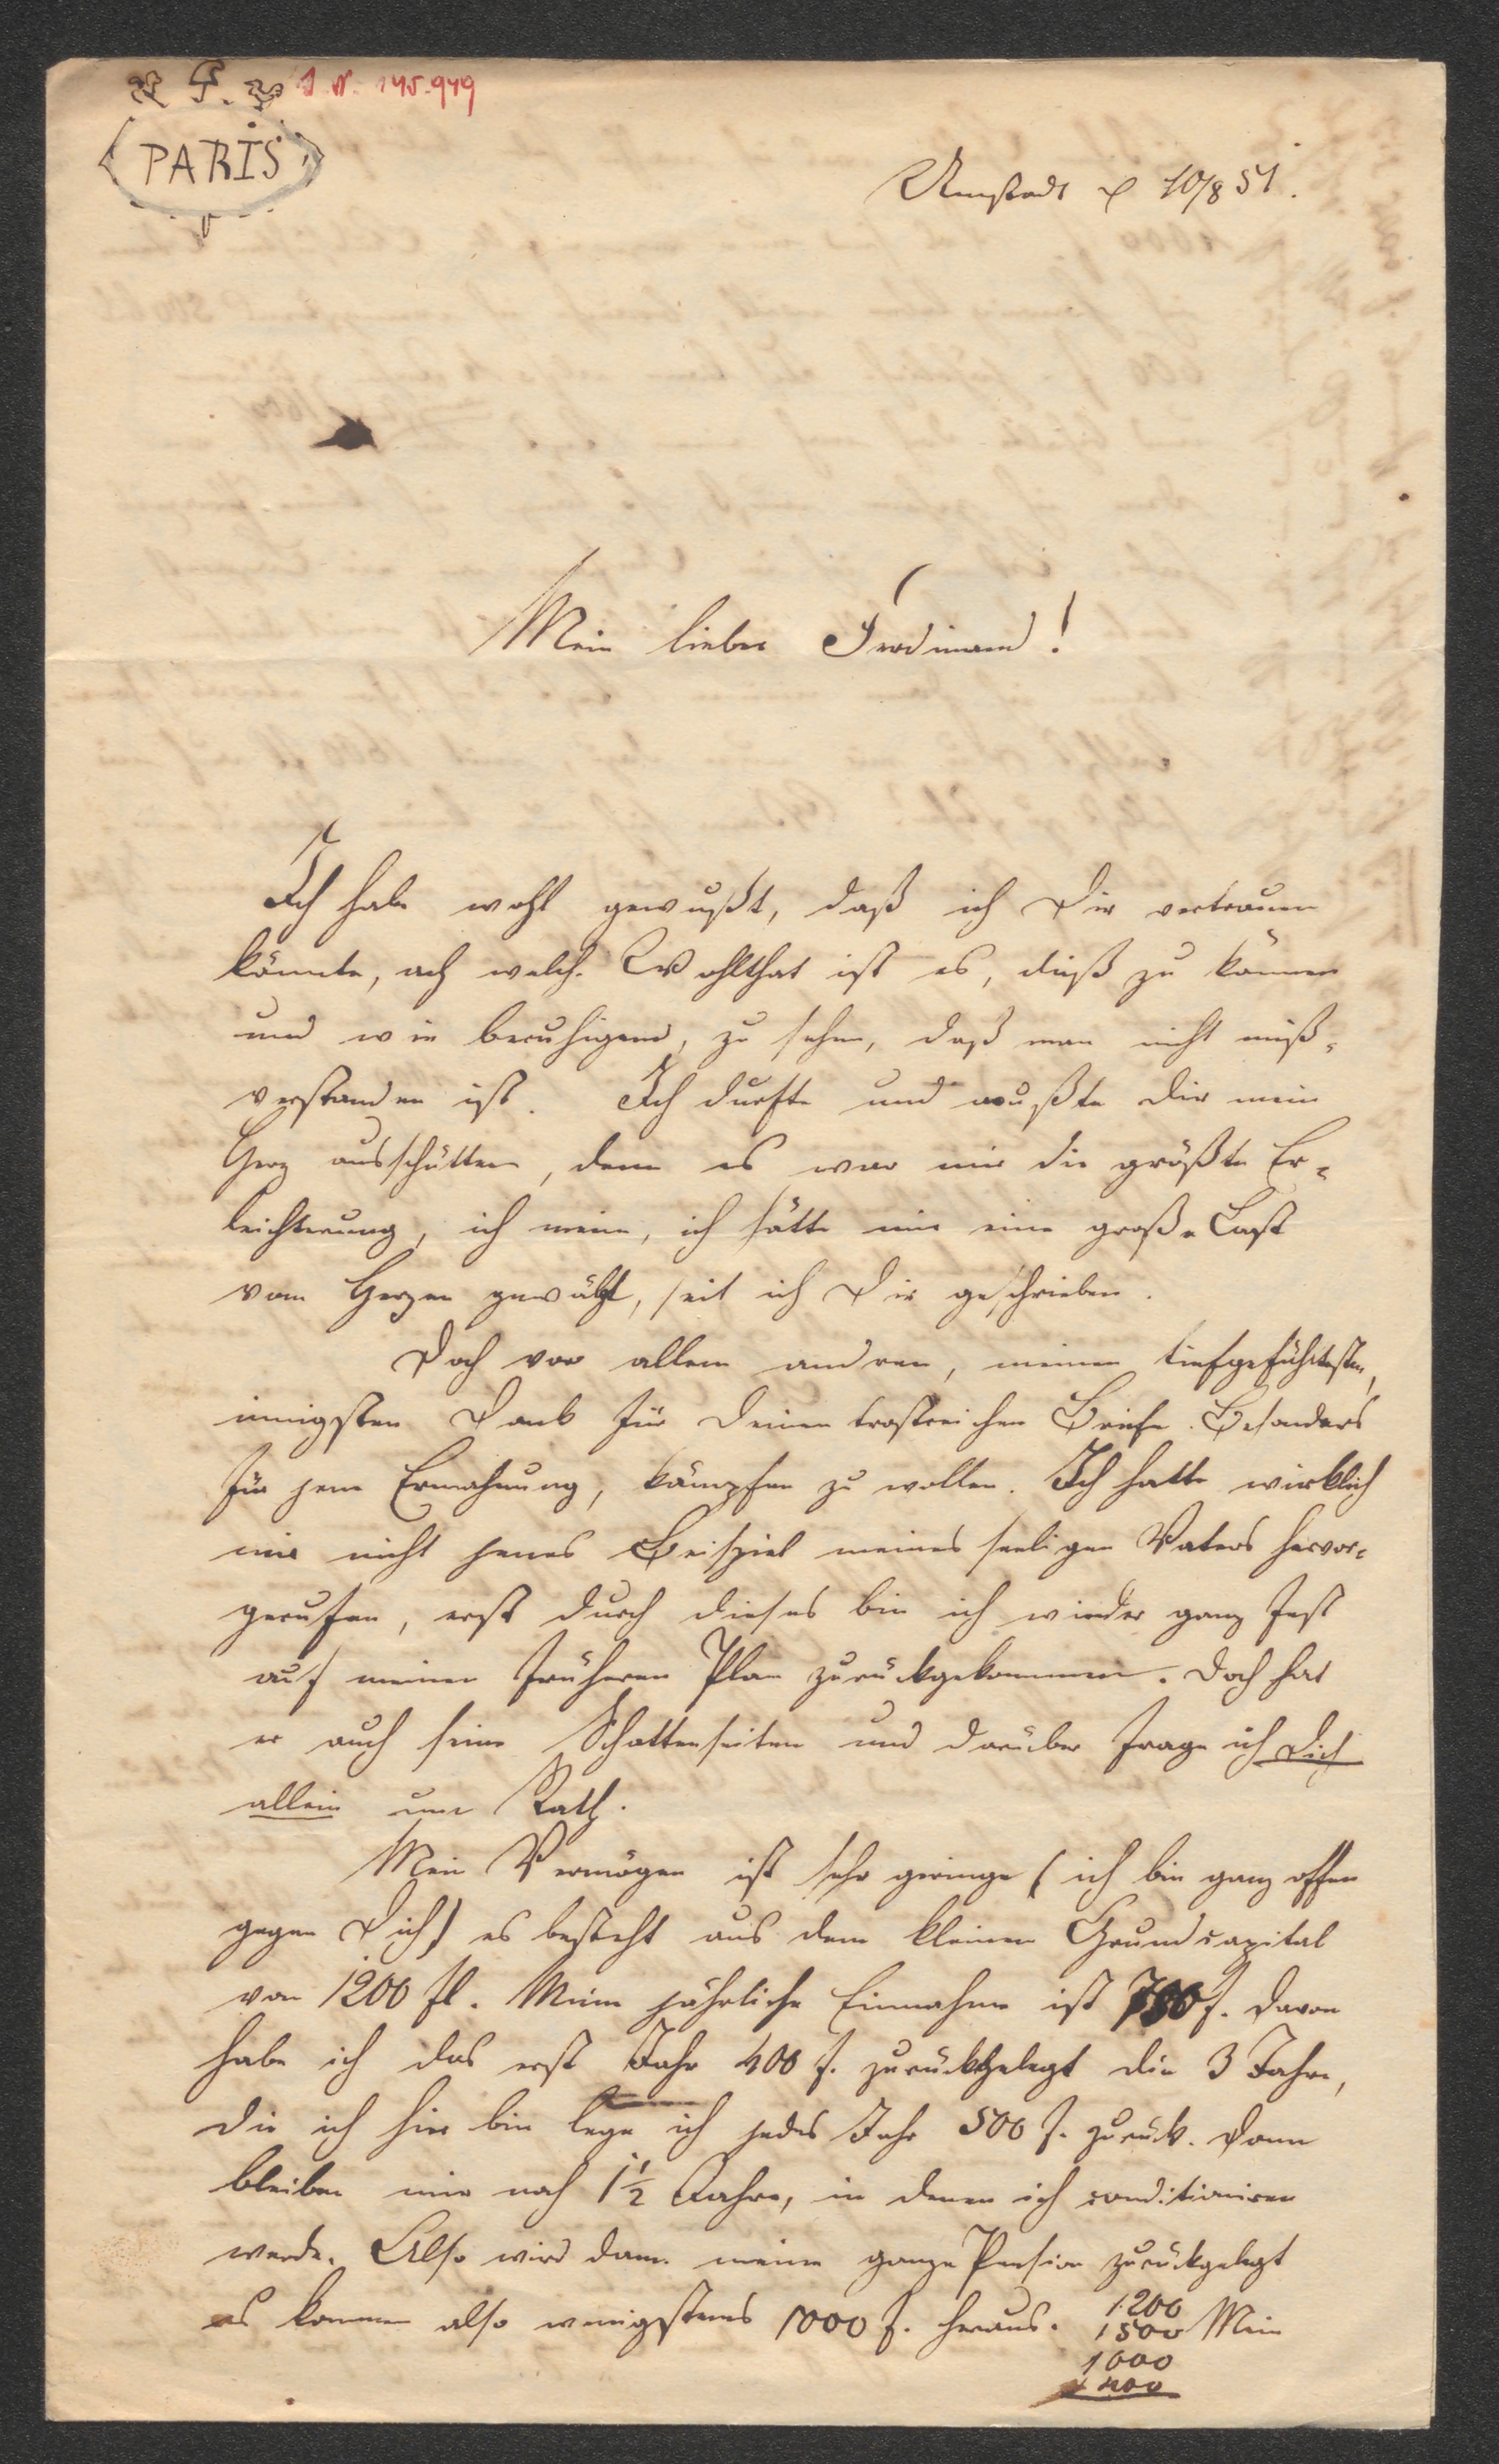 I. N. 145.949
PARIS
Umstadt d 10/8 51.
Mein lieber Ferdinand!
Ich habe wohl gewußt, daß ich Dir vertrauen
könnte, ach welche Wohlthat ist es, dieß zu können
und wie beruhigend, zu sehen, daß man nicht miß-
verstanden ist. Ich durfte und mußte Dir mein
Herz ausschütten, denn es war mir die größte Er-
leichterung, ich meine, ich hätte mir eine große Last
vom Herzen gewälzt, seit ich Dir geschrieben.
Doch vor allem andren, meinen tiefgefühltesten,
innigsten Dank für Deinen trostreichen Briefe. Besonders
für jene Ermahnung, kämpfen zu wollen. Ich hatte wirklich
mir nicht jenes Beispiel meines seeligen Vaters hervor-
gerufen, erst durch dieses bin ich wieder ganz fest
auf meinen früheren Plan zurückgekommen. Doch hat
er auch seine Schattenseiten und darüber frage ich Dich
allein um Rath.
Mein Vermögen ist sehr geringe (ich bin ganz offen
gegen Dich) es besteht aus dem kleinen Grundcapital
von 1200 fl. Meine jährliche Einnahme ist 700 f. Davon
habe ich das erst Jahr 400 f. zurückgelegt die 3 Jahre,
die ich hier bin lege ich jedes Jahr 500 f. zurück. Dann
bleiben mir noch 1 1/2 Jahre, in denen ich conditioniren
werde. Also wird dann meine ganze Pension zurückgelegt
es kommen also wenigstens 1000 f. heraus. Mein
1200
1500
1000
400